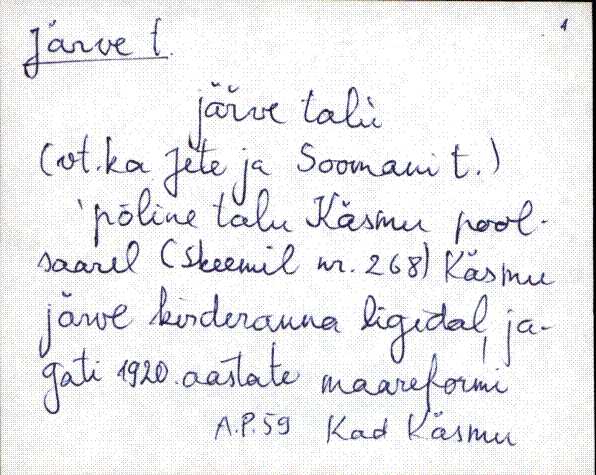 Järve t. 1
järve talu
(vt. ka Jete ja Soomani t.)
'põline talu Käsmu pool-
saarel (skeemil nr. 268) Käsmu
järve kirderanna ligidal, ja-
gati 1920. aastate maareformi
A.P. 59 Kad Käsmu